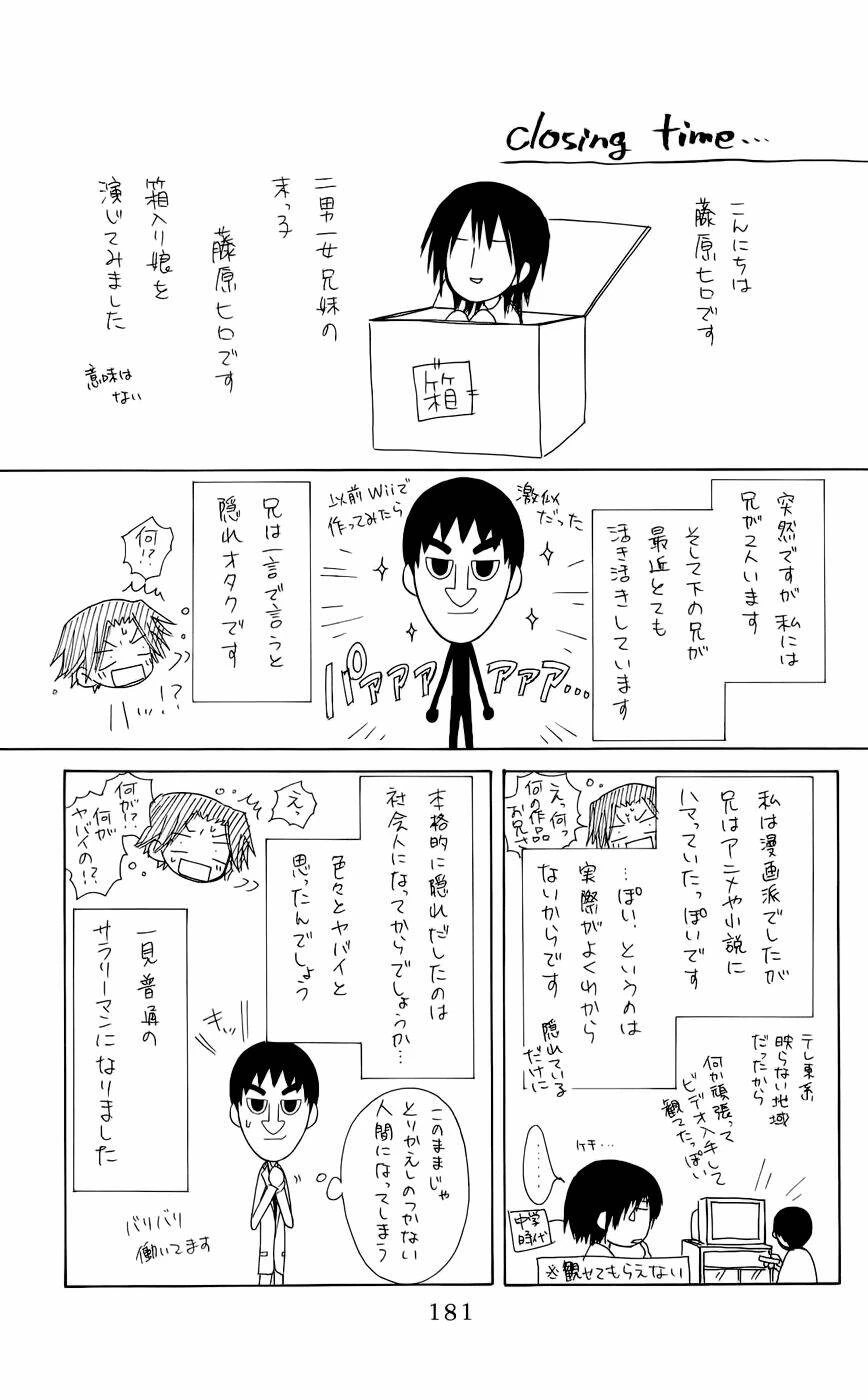 closing time...
こんにちは
藤原ヒロです
二男一女兄妹の
末っ子
藤原ヒロです
箱入り娘を
演じてみました
意味は
ない
箱
突然ですが私には
兄が2人います
そして下の兄が
最近とても
活き活きしています
激似
だった
以前Wiiで
作ってみたら
パァァァァァァ…
兄は一言で言うと
隠れオタクです
何!?
ハ…!?
私は漫画派でしたが
兄はアニメや小説に
ハマっていたっぽいです
…ぽい、というのは
実際がよくわから
ないからです
隠れている
だけに
えっ何っ
何の作品
お兄さ
テレ東系
映らない地域
だったから
何か頑張って
ビデオ入手して
観てたっぽい
ケチ…
……
中学
時代
※観せてもらえない
本格的に隠れだしたのは
社会人になってからでしょうか…
色々とヤバイと
思ったんでしょう
えっ
何が!?
何が
ヤバイの!?
このままじゃ
とりかえしのつかない
人間になってしまう
キッ
一見普通の
サラリーマンになりました
バリバリ
働いてます
181